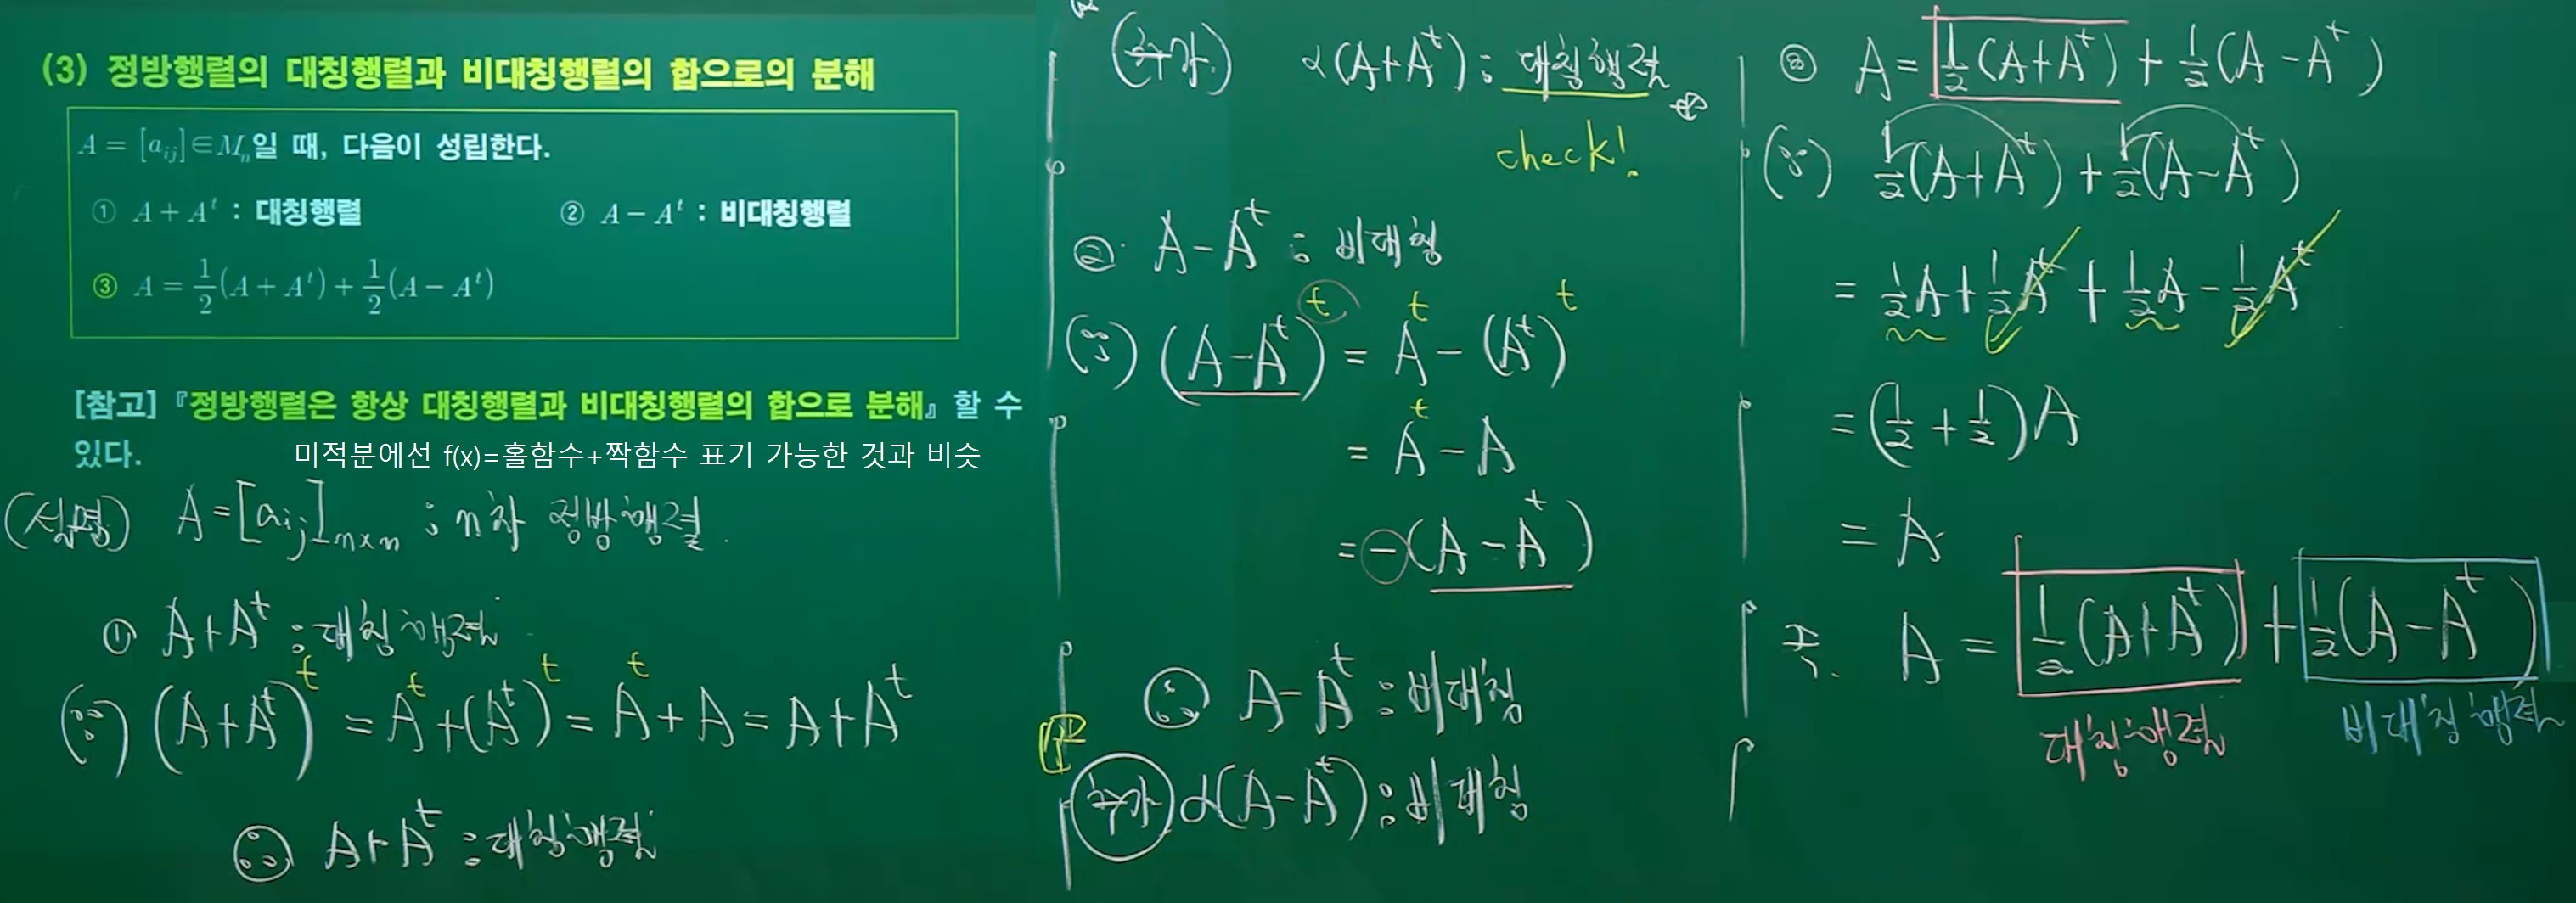 (3) 정방행렬의 대칭행렬과 비대칭행렬의 합으로의 분해
A = [a_ij] ∈ M_n일 때, 다음이 성립한다.
① A + A^t : 대칭행렬 ② A − A^t : 비대칭행렬
③ A = 1/2(A + A^t) + 1/2(A − A^t)
[참고] 『정방행렬은 항상 대칭행렬과 비대칭행렬의 합으로 분해』할 수
있다.
미적분에선 f(x)=홀함수+짝함수 표기 가능한 것과 비슷
(설명) A = [a_ij]_n×n : n차 정방행렬.
① A+A^t : 대칭행렬
(∵) (A+A^t)^t = A^t+(A^t)^t = A^t+A = A+A^t
∴ A+A^t : 대칭행렬
(추가) α(A+A^t) : 대칭행렬
check!
② A−A^t : 비대칭
(∵) (A−A^t)^t = A^t − (A^t)^t
= A^t − A
= −(A − A^t)
∴ A−A^t : 비대칭
추가 α(A−A^t) : 비대칭
③ A = 1/2(A+A^t) + 1/2(A−A^t)
(∵) 1/2(A+A^t) + 1/2(A−A^t)
= 1/2A + 1/2A^t + 1/2A − 1/2A^t
= (1/2 + 1/2)A
= A
즉. A = 1/2(A+A^t) + 1/2(A−A^t)
대칭행렬 비대칭행렬